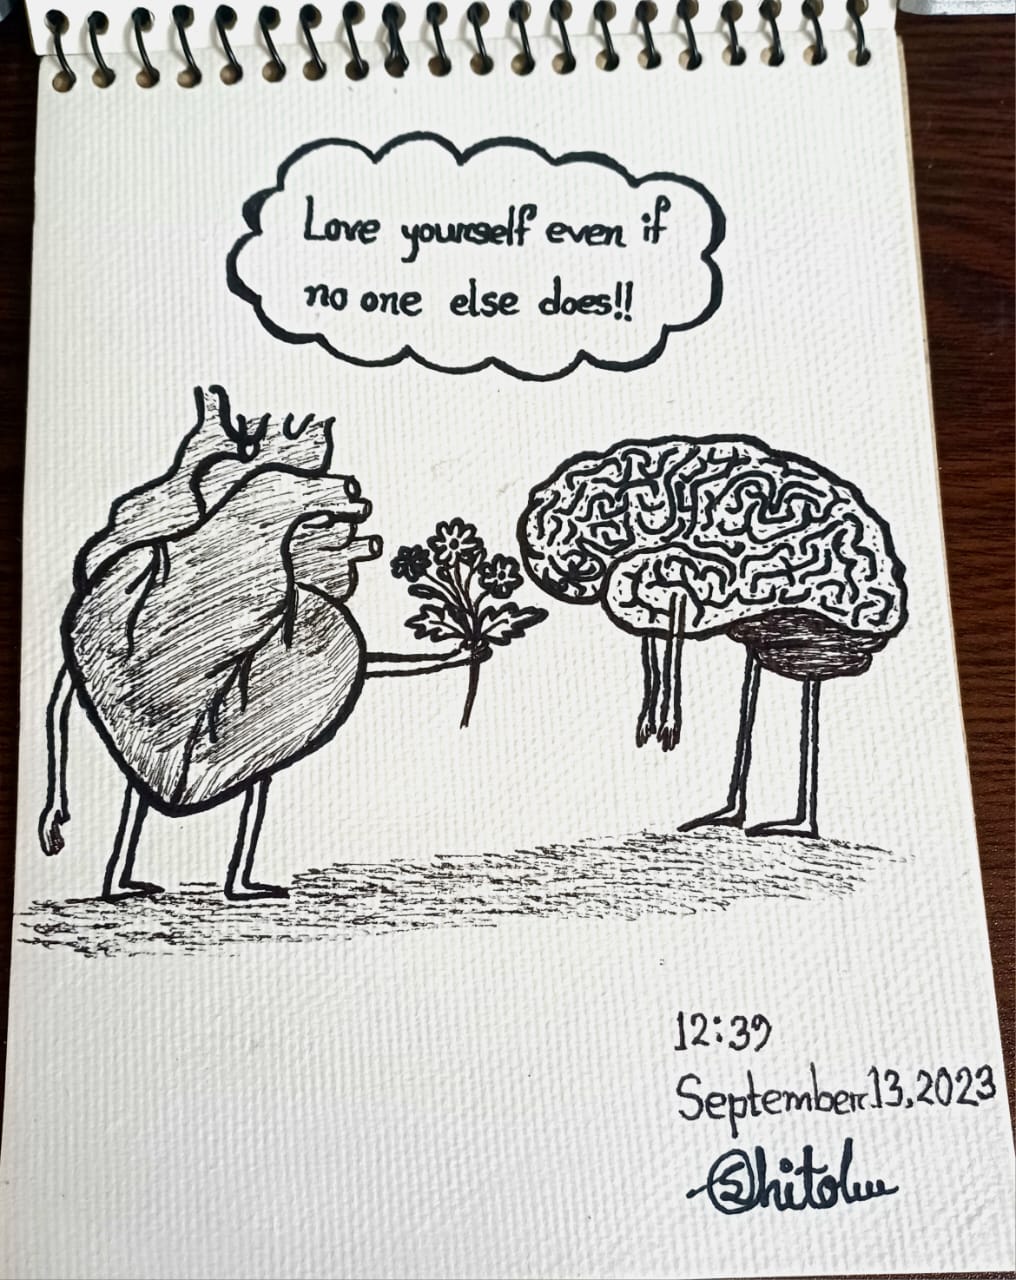 Love yourself even if
no one else does!!
12:39
September.13,2023